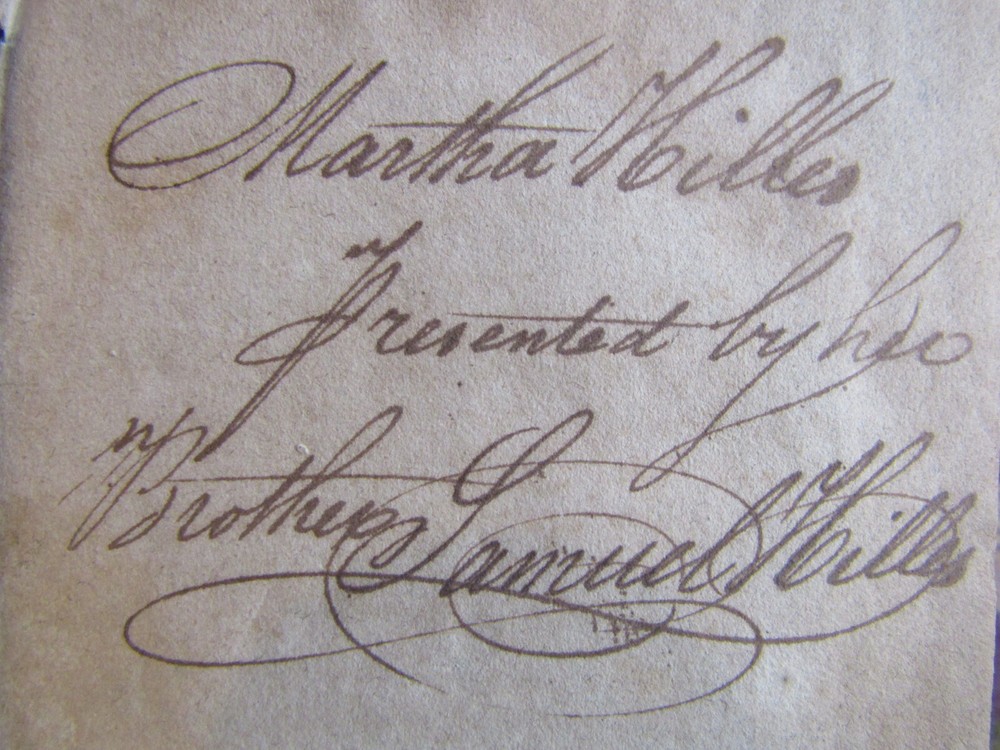 Martha Hilles
Presented by her
Brother Samuel Hilles